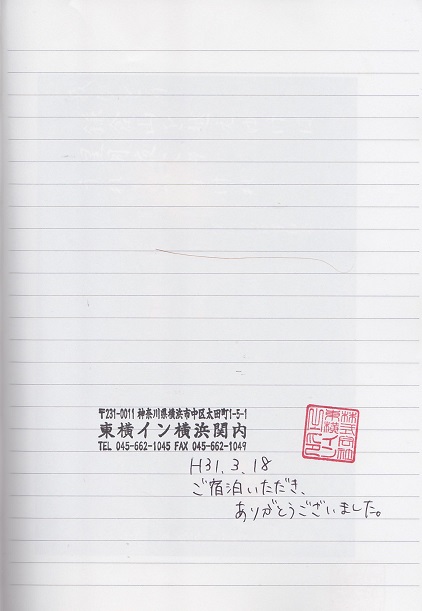 〒231-0011 神奈川県横浜市中区太田町1-5-1
東横イン横浜関内
TEL 045-662-1045 FAX 045-662-1049
株式会社
東横イン
之印
H31.3.18
ご宿泊いただき、
ありがとうございました。